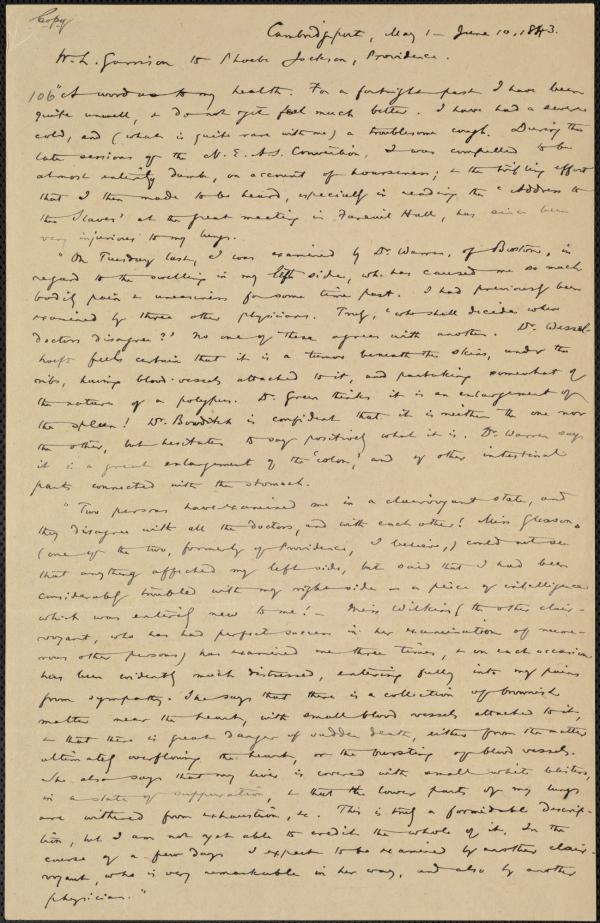 Copy
Cambridgeport, May 1 – June 10, 1843.
W. L. Garrison to Phoebe Jackson, Providence.
106 "A word as to my health. For a fortnight past I have been
quite unwell, & do not yet feel much better. I have had a severe
cold, and (what is quite rare with me) a troublesome cough. During the
late sessions of the N. E. A. S. Convention, I was compelled to be
almost entirely dumb, on account of hoarseness; & the trifling effort
that I then made to be heard, especially in reading the "Address to
the Slaves" at the great meeting in Faneuil Hall, has since been
very injurious to my lungs.
"On Tuesday last, I was examined by Dr. Warren, of Boston, in
regard to the swelling in my left side, wh. has caused me so much
bodily pain & uneasiness for some time past. I had previously been
examined by three other physicians. Truly, "who shall decide when
doctors disagree?" No one of these agrees with another. Dr. Wessel-
hoeft feels certain that it is a tumor beneath the skin, under the
ribs, having blood-vessels attached to it, and partaking somewhat of
the nature of a polypus. Dr. Green thinks it is an enlargement of
the spleen! Dr. Bowditch is confident that it is neither the one nor
the other, but hesitates to say positively what it is. Dr. Warren says
it is a great enlargement of the 'colon,' and of other intestinal
parts connected with the stomach.
"Two persons have examined me in a clairvoyant state, and
they disagree with all the doctors, and with each other! Miss Gleason
(one of the two, formerly of Providence, I believe,) could not see
that anything affected my left side, but said that I had been
considerably troubled with my right side – a piece of intelligence
which was entirely new to me! – Miss Wilkins (the other clair-
voyant, who has had perfect success in her examination of nume-
rous other persons) has examined me three times, & on each occasion
has been evidently much distressed, entering fully into my pains
from sympathy. She says that there is a collection of brownish
matter near the heart, with small blood vessels attached to it,
& that there is great danger of sudden death, either from the matter
ultimately overflowing the heart, or the bursting of blood vessels.
She also says that my liver is covered with small white blisters,
in a state of suppuration, & that the lower parts of my lungs
are withered from exhaustion, &c. This is truly a formidable descrip-
tion, but I am not yet able to credit the whole of it. In the
course of a few days I expect to be examined by another clair-
voyant, who is very remarkable in her way, and also by another
physician."